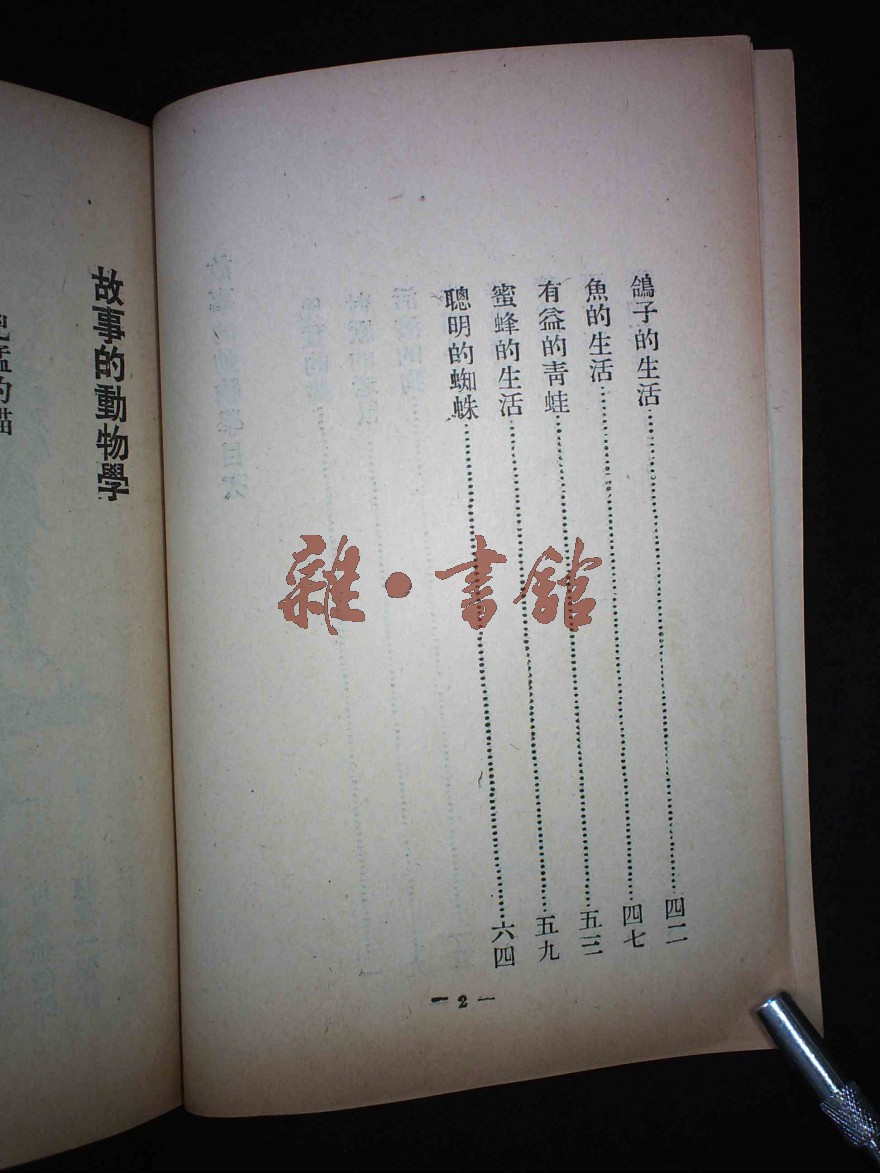 鴿子的生活…………四二
魚的生活…………四七
有益的靑蛙…………五三
蜜蜂的生活…………五九
聰明的蜘蛛…………六四
— 2 —
故事的動物學
的貓
雜·書館